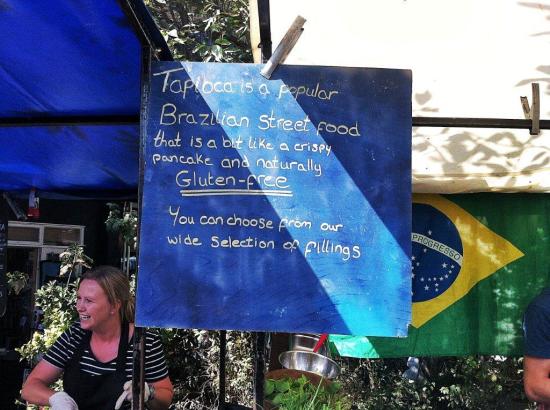 Tapioca is a popular
Brazilian Street food
that is a bit like a crispy
pancake and naturally
Gluten-free
You can choose from our
wide selection of fillings
PROGRESSO